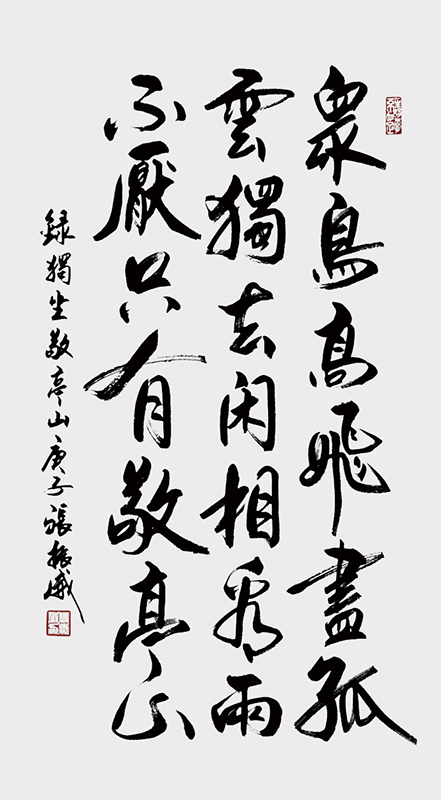 眾鳥高飛盡孤
雲獨去閑相看兩
不厭只有敬亭山
錄獨坐敬亭山庚子張振威